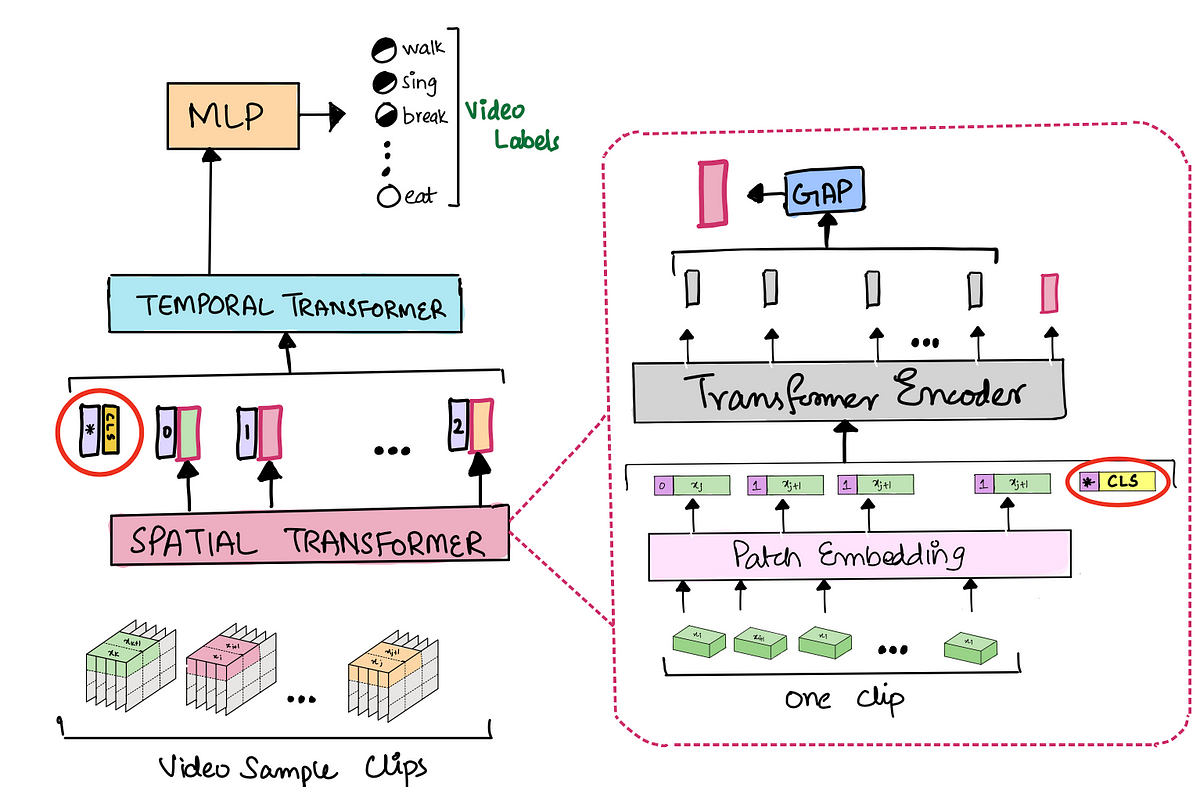 walk
sing
break
eat
Video
Labels
MLP
TEMPORAL TRANSFORMER
* CLS
0
1
...
2
SPATIAL TRANSFORMER
...
Video Sample Clips
GAP
...
Transformer Encoder
0 xj
1 xj+1
1 xj+1
1 xj+1
* CLS
Patch Embedding
...
One Clip